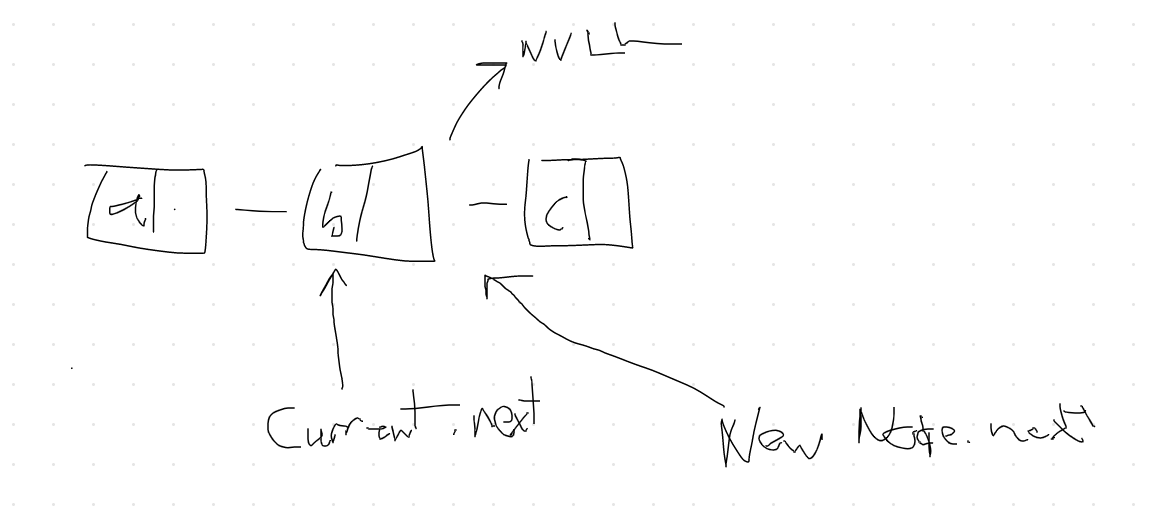 NULL
a b c
Current.next
New Node.next